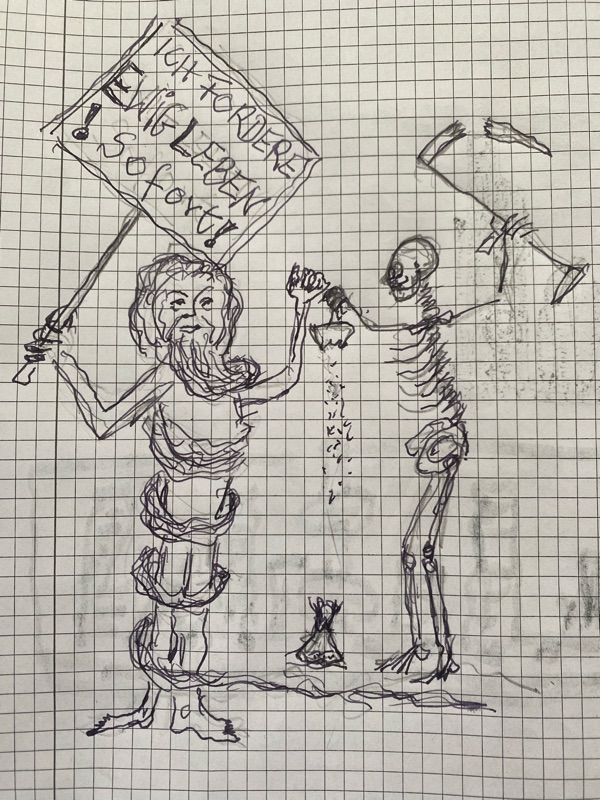 ICH FORDERE
EWIG LEBEN
! Sofort!